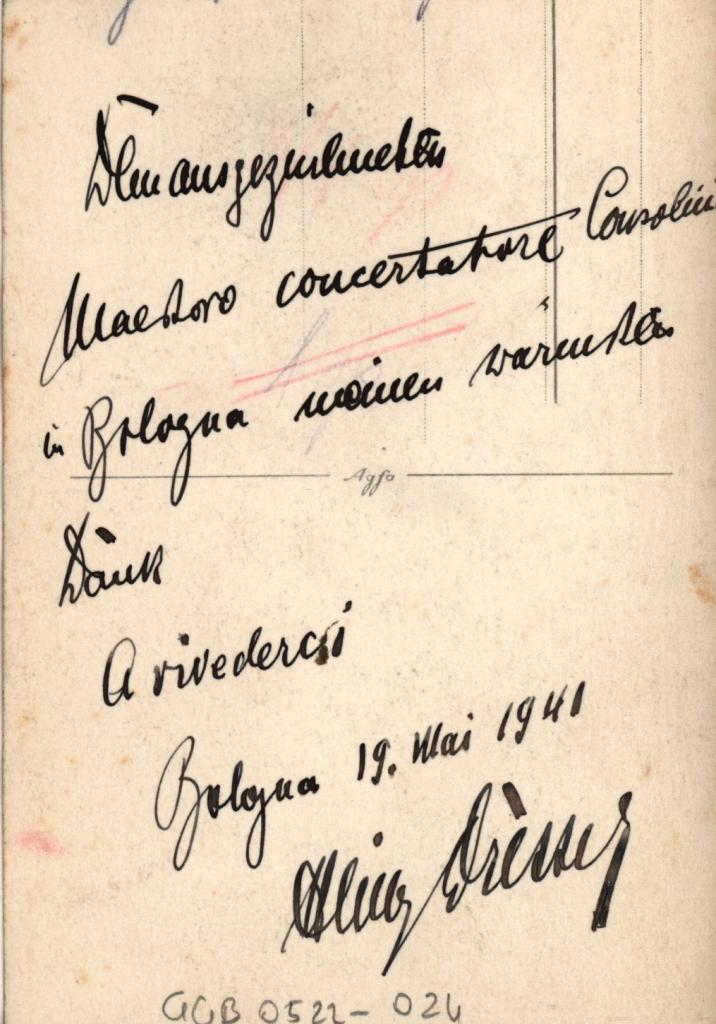 Dem ausgezeichneten
Maestro concertatore Consolini
in Bologna meinen wärmsten
Agfa
Dank
A rivederci
Bologna 19. Mai 1941
Heinz Dressel
GGB 0522-024